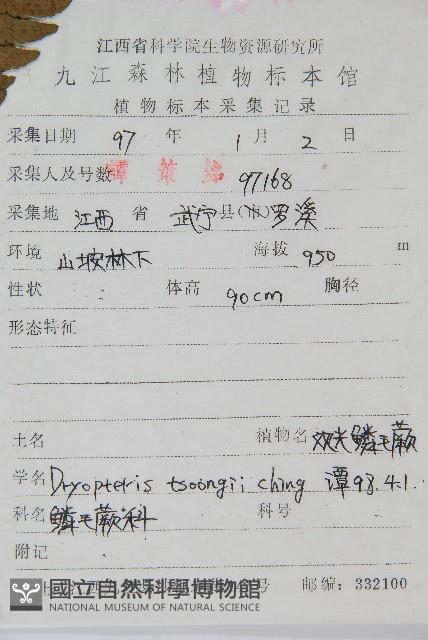 江西省科学院生物资源研究所
九江森林植物标本馆
植物标本采集记录
采集日期 97 年 1 月 2 日
采集人及号数 譚策銘 97168
采集地 江西 省 武宁 县(市) 罗溪
环境 山坡林下 海拔 950 m
性状 体高 90cm 胸径
形态特征
土名 植物名 观光鳞毛蕨
学名 Dryopteris tsoongii ching 谭 98.4.1.
科名 鳞毛蕨科 科号
附记
号 邮编：332100
國立自然科學博物館
NATIONAL MUSEUM OF NATURAL SCIENCE